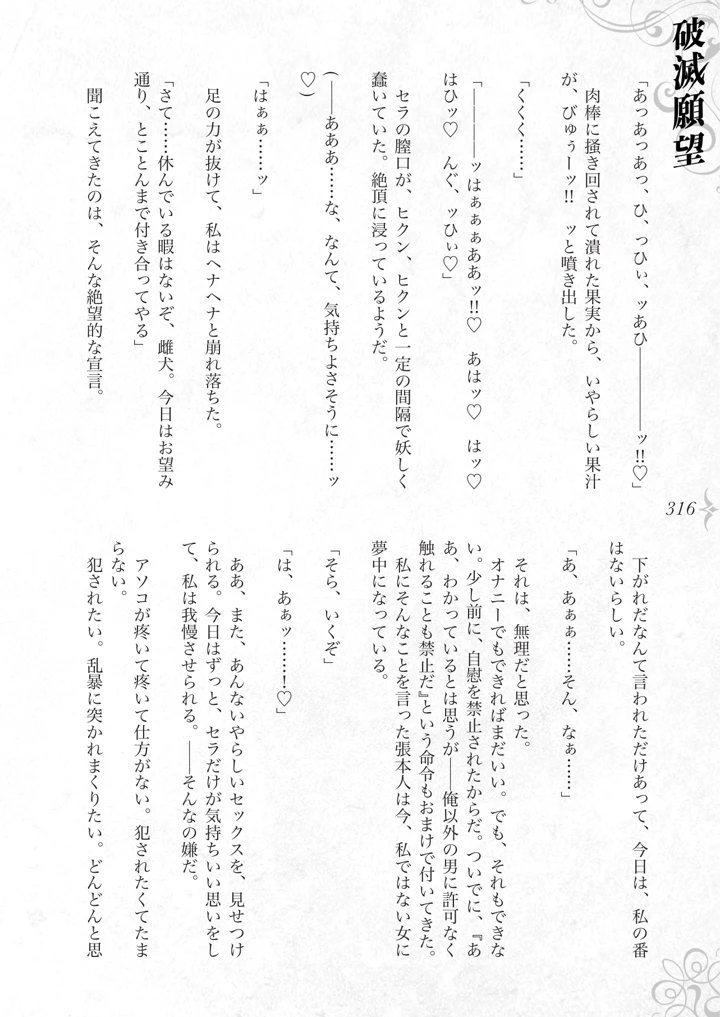 破滅願望
「あっあっあっ、ひ、っひぃ、ッあひ――――――ッ!!♡」
肉棒に掻き回されて潰れた果実から、いやらしい果汁
が、びゅぅーッ!! ッと噴き出した。
「くくく……」
「――――ッはぁぁぁああッ!!♡ あはッ♡ はッ♡
はひッ♡ んぐ、ッひぃ♡」
セラの膣口が、ヒクン、ヒクンと一定の間隔で妖しく
蠢いていた。絶頂に浸っているようだ。
(――あああ……な、なんて、気持ちよさそうに……ッ
♡)
「はぁぁ……ッ」
足の力が抜けて、私はヘナヘナと崩れ落ちた。
「さて……休んでいる暇はないぞ、雌犬。今日はお望み
通り、とことんまで付き合ってやる」
聞こえてきたのは、そんな絶望的な宣言。
316
下がれだなんて言われただけあって、今日は、私の番
はないらしい。
「あ、あぁぁ……そん、なぁ……」
それは、無理だと思った。
オナニーでもできればまだいい。でも、それもできな
い。少し前に、自慰を禁止されたからだ。ついでに、『あ
あ、わかっているとは思うが――俺以外の男に許可なく
触れることも禁止だ』という命令もおまけで付いてきた。
私にそんなことを言った張本人は今、私ではない女に
夢中になっている。
「そら、いくぞ」
「は、あぁッ……!♡」
ああ、また、あんないやらしいセックスを、見せつけ
られる。今日はずっと、セラだけが気持ちいい思いをし
て、私は我慢させられる。――そんなの嫌だ。
アソコが疼いて疼いて仕方がない。犯されたくてたま
らない。
犯されたい。乱暴に突かれまくりたい。どんどんと思